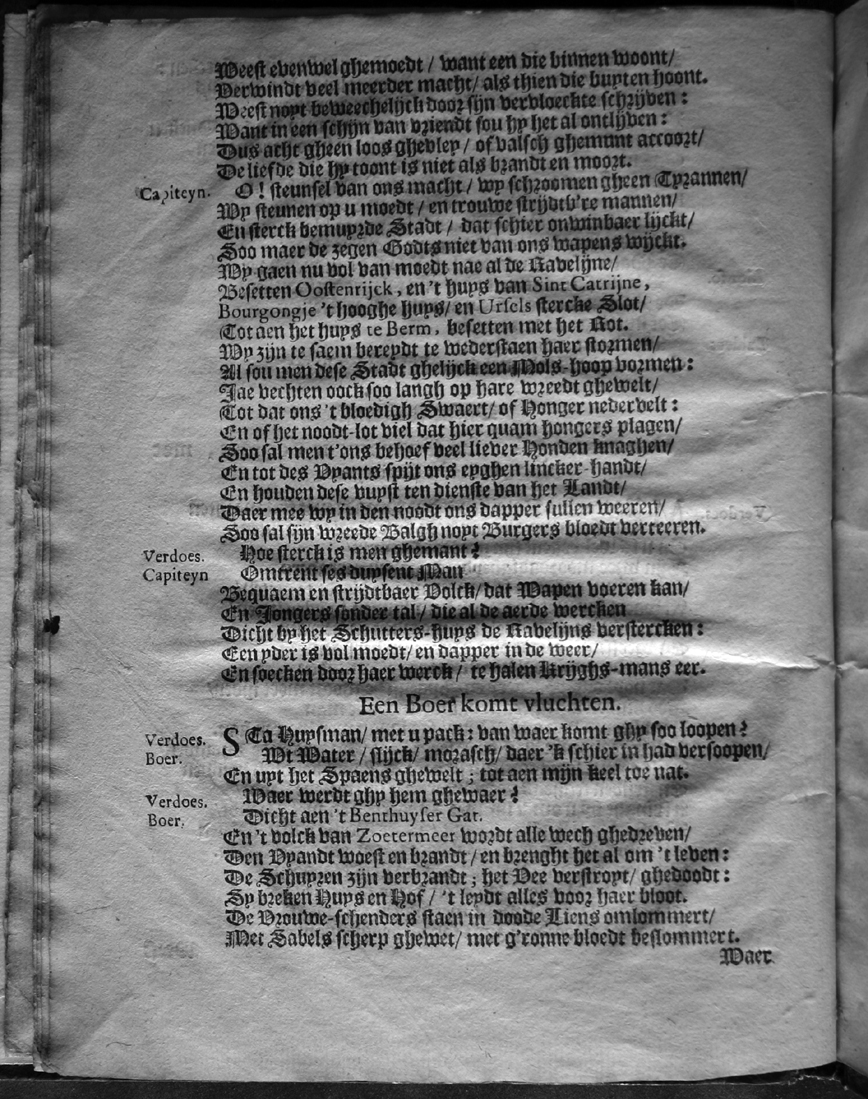 Weest evenwel ghemoedt / want een die binnen woont/
Verwindt veel meerder macht / als thien die buyten hoont.
Weest noyt beweechelijck door sijn vervloeckte schrijven :
Want in een schijn van vriendt sou hy het al ontlijven :
Dus acht gheen loos ghevley / of valsch ghemunt accoort/
De liefde die hy toont is niet als brandt en moort.
Capiteyn. O ! steunsel van ons macht / wy schroomen gheen Tyrannen/
Wy steunen op u moedt / en trouwe strijdtb're mannen/
En sterck bemuyrde Stadt / dat schier onwinbaer lijckt/
Soo maer de zegen Godts niet van ons wapens wijckt.
Wy gaen nu vol van moedt nae al de Ravelijne/
Besetten Oostenrijck, en 't huys van Sint Catrijne,
Bourgongje 't hooghe huys/ en Ursels stercke Slot/
Tot aen het huys te Berm, besetten met het Rot.
Wy zijn te saem bereydt te wederstaen haer stormen/
Al sou men dese Stadt ghelijck een Mols-hoop vormen :
Jae vechten oock soo langh op hare wreedt ghewelt/
Tot dat ons 't bloedigh Swaert/ of Honger neder velt :
En of het noodt-lot viel dat hier quam hongers plagen/
Soo sal men t'ons behoef veel liever Honden knaghen/
En tot des Vyants spijt ons eyghen lincker-handt/
En houden dese vuyst ten dienste van het Landt/
Daer mee wy in den noodt ons dapper sullen weeren/
Soo sal sijn wreede Balgh noyt Burgers bloedt verteeren.
Verdoes. Hoe sterck is men ghemant ?
Capiteyn Omtrent ses duysent Man
Bequaem en strijdtbaer Volck/ dat Wapen voeren kan/
En Jongers sonder tal / die al de aerde wercken
Dicht by het Schutters-huys de Ravelijns verstercken :
Een yder is vol moedt/ en dapper in de weer/
En soecken door haer werck / te halen Krijghs-mans eer.
Een Boer komt vluchten.
Verdoes. STa Huysman/ met u pack : van waer komt ghy soo loopen ?
Boer. Wt Water / slijck/ morasch/ daer 'k schier in had versoopen/
En uyt het Spaens ghewelt ; tot aen mijn keel toe nat.
Verdoes. Waer werdt ghy hem ghewaer ?
Boer. Dicht aen 't Benthuyser Gat.
En 't volck van Zoetermeer wordt alle wech ghedreven/
Den Vyandt woest en brandt / en brenght het al om 't leven :
De Schuyren zijn verbrandt ; het Vee verstroyt/ ghedoodt :
Sy breken Huys en Hof / 't leydt alles voor haer bloot.
De Vrouwe-schenders staen in doode Liens omlommert/
Met Sabels scherp ghewet/ met g'ronne bloedt beslommert.
Waer